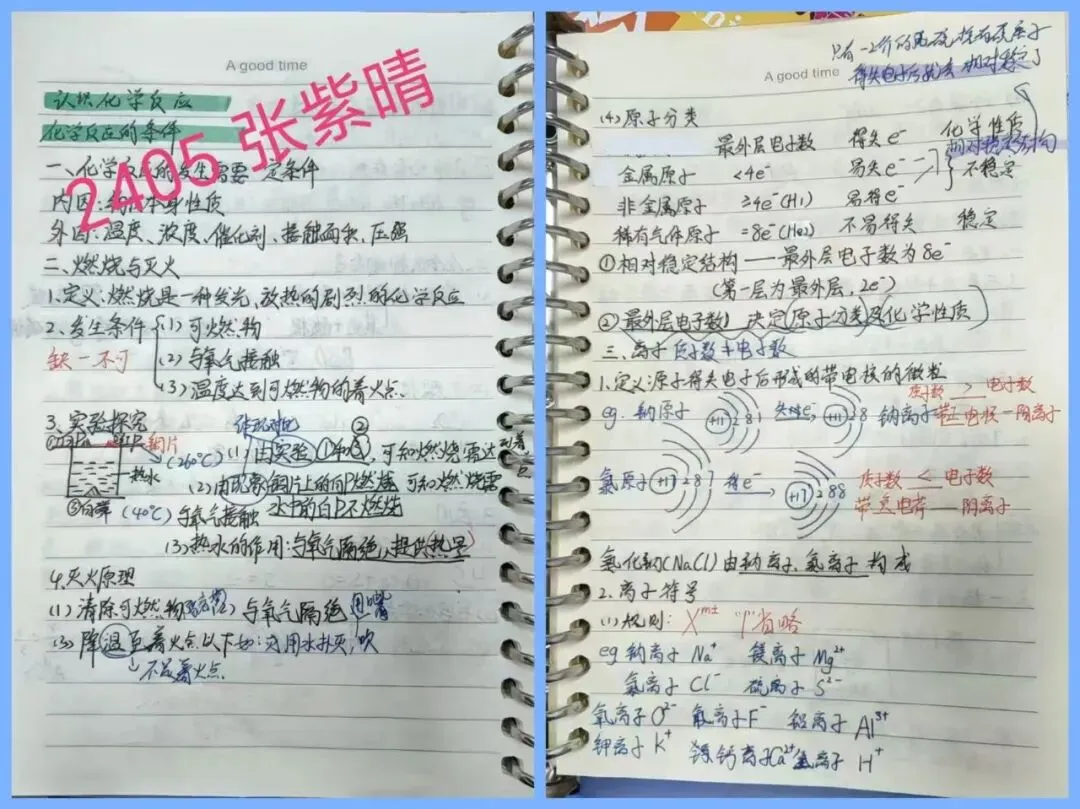 A good time
2405 张紫晴
认识化学反应
化学反应的条件
一、化学反应的发生需要一定条件
内因:物质本身性质
外因:温度、浓度、催化剂、接触面积、压强
二、燃烧与灭火
1.定义:燃烧是一种发光,放热的剧烈的化学反应
2、发生条件 (1)可燃物
缺一不可
(2)与氧气接触
(3)温度达到可燃物的着火点
3.实验探究
铜片
热水
(260℃) (1)由实验①和③,可知燃烧需达到着火点
(2)由现象铜片上的白P燃烧,可知燃烧需
③白磷 (40℃) 与氧气接触 水中的白P不燃烧
(3)热水的作用:与氧气隔绝,提供热量
4.灭火原理
(1)清除可燃物 (2)与氧气隔绝
(3)降温至着火点以下如:用水扑灭,吹
不是着火点.
A good time
得失电子后 相对稳定了
(4)原子分类
最外层电子数 得失e⁻ 化学性质
金属原子 <4e⁻ 易失e⁻ 不稳定
非金属原子 ≥4e⁻(H1) 易得e⁻
稀有气体原子 =8e⁻(He2) 不易得失 稳定
①相对稳定结构——最外层电子数为8e⁻
(第一层为最外层,2e⁻)
②最外层电子数 决定(原子分类及化学性质)
三、离子 质子数≠电子数
1.定义源子得失电子后形成的带电核的微粒
质子数 > 电子数
eg. 钠原子 +11 2 8 1 失e⁻ +11 2 8 钠离子带正电核—阳离子
氯原子 +17 2 8 7 得e⁻ +17 2 8 8 质子数 < 电子数
带负电荷——阴离子
氯化钠(NaCl)由钠离子,氯离子 构成
2.离子符号
(1)规则: Xᵐ± "1"省略
eg 钠离子 Na⁺ 镁离子 Mg²⁺
氯离子 Cl⁻ 硫离子 S²⁻
氧离子 O²⁻ 氟离子 F⁻ 铝离子 Al³⁺
钾离子 K⁺ 钙离子Ca²⁺ 氢离子 H⁺